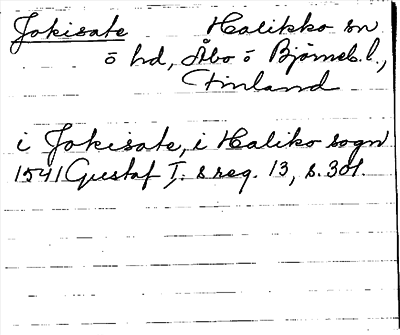 Jokisate Halikko sn
ö hd, Åbo ö Björneb. l.,
Finland
i Jokisate, i Haliko sogn
1541 Gustaf I: s reg. 13, s. 301.